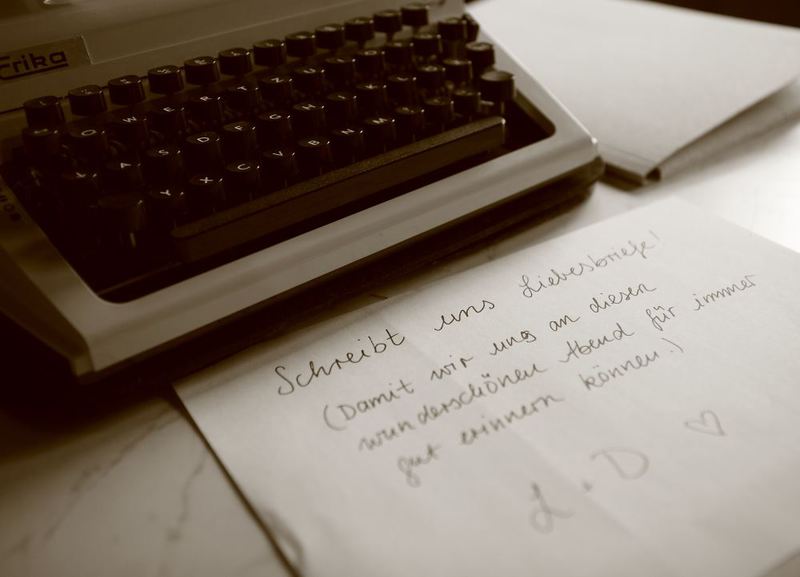 Erika
Q W E R T Z
A S D F G H
Y X C V B N M
Schreibt uns Liebesbriefe!
(Damit wir uns an diesen
wunderschönen Abend für immer
gut erinnern können.)
L. D ♡